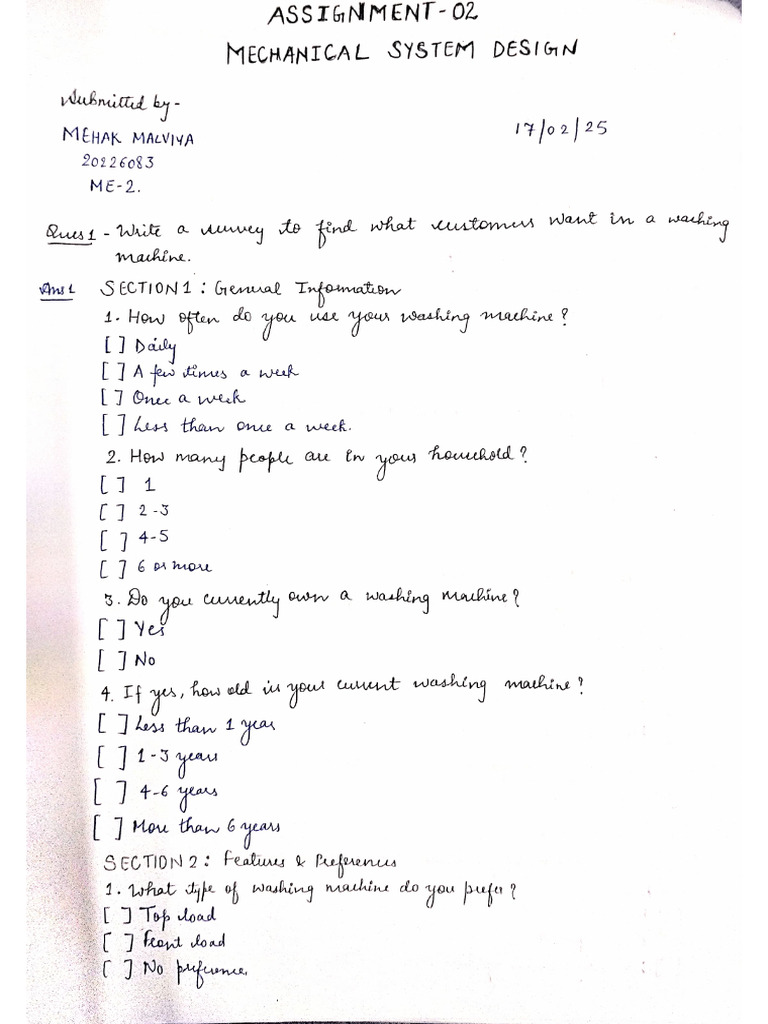 ASSIGNMENT-02
MECHANICAL SYSTEM DESIGN
Submitted by -
MEHAK MALVIYA
17/02/25
20226083
ME-2.
Ques 1 - Write a survey to find what customers want in a washing
machine.
Ans 1 SECTION 1 : General Information
1. How often do you use your washing machine?
[ ] Daily
[ ] A few times a week
[ ] Once a week
[ ] Less than once a week.
2. How many people are in your household?
[ ] 1
[ ] 2-3
[ ] 4-5
[ ] 6 or more
3. Do you currently own a washing machine?
[ ] Yes
[ ] No
4. If yes, how old is your current washing machine?
[ ] Less than 1 year
[ ] 1-3 years
[ ] 4-6 years
[ ] More than 6 years
SECTION 2 : Features & Preferences
1. What type of washing machine do you prefer?
[ ] Top load
[ ] Front load
[ ] No preference